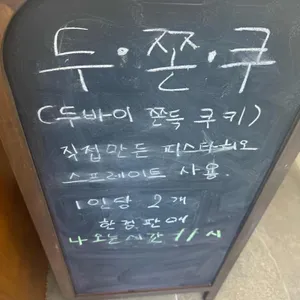 두·쫀·쿠
(두바이 쫀득 쿠키)
직접만든 피스타치오
스프레이트 사용.
1인당 2개
한정판매
나오는시간 11시